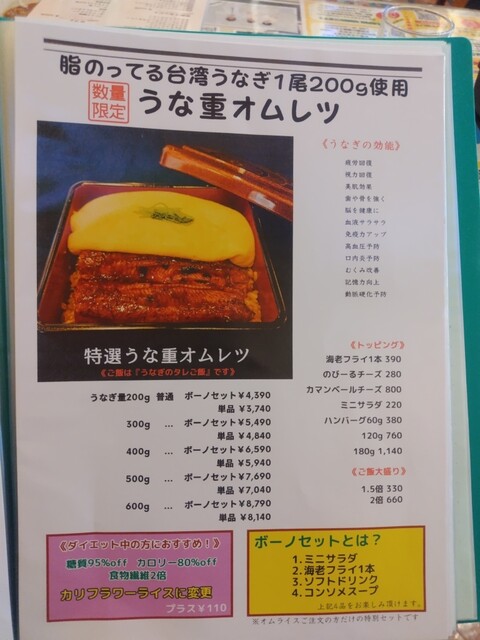 脂のってる台湾うなぎ1尾200g使用
数量
限定
うな重オムレツ
《うなぎの効能》
疲労回復
視力回復
美肌効果
歯や骨を強く
脳を健康に
血液サラサラ
免疫力アップ
高血圧予防
口内炎予防
むくみ改善
記憶力向上
動脈硬化予防
特選うな重オムレツ
《ご飯は『うなぎのタレご飯』です》
うなぎ量200g 普通 ボーノセット¥4,390
単品 ¥3,740
300g … ボーノセット¥5,490
単品 ¥4,840
400g … ボーノセット¥6,590
単品 ¥5,940
500g … ボーノセット¥7,690
単品 ¥7,040
600g … ボーノセット ¥8,790
単品 ¥8,140
《トッピング》
海老フライ1本 390
のびーるチーズ 280
カマンベールチーズ 800
ミニサラダ 220
ハンバーグ60g 380
120g 760
180g 1,140
《ご飯大盛り》
1.5倍 330
2倍 660
《ダイエット中の方におすすめ！》
糖質95%off カロリー80%off
食物繊維2倍
カリフラワーライスに変更
プラス¥110
ボーノセットとは？
1.ミニサラダ
2.海老フライ1本
3.ソフトドリンク
4.コンソメスープ
上記4品をお楽しみ頂けます。
※オムライスご注文の方だけの特別セットです